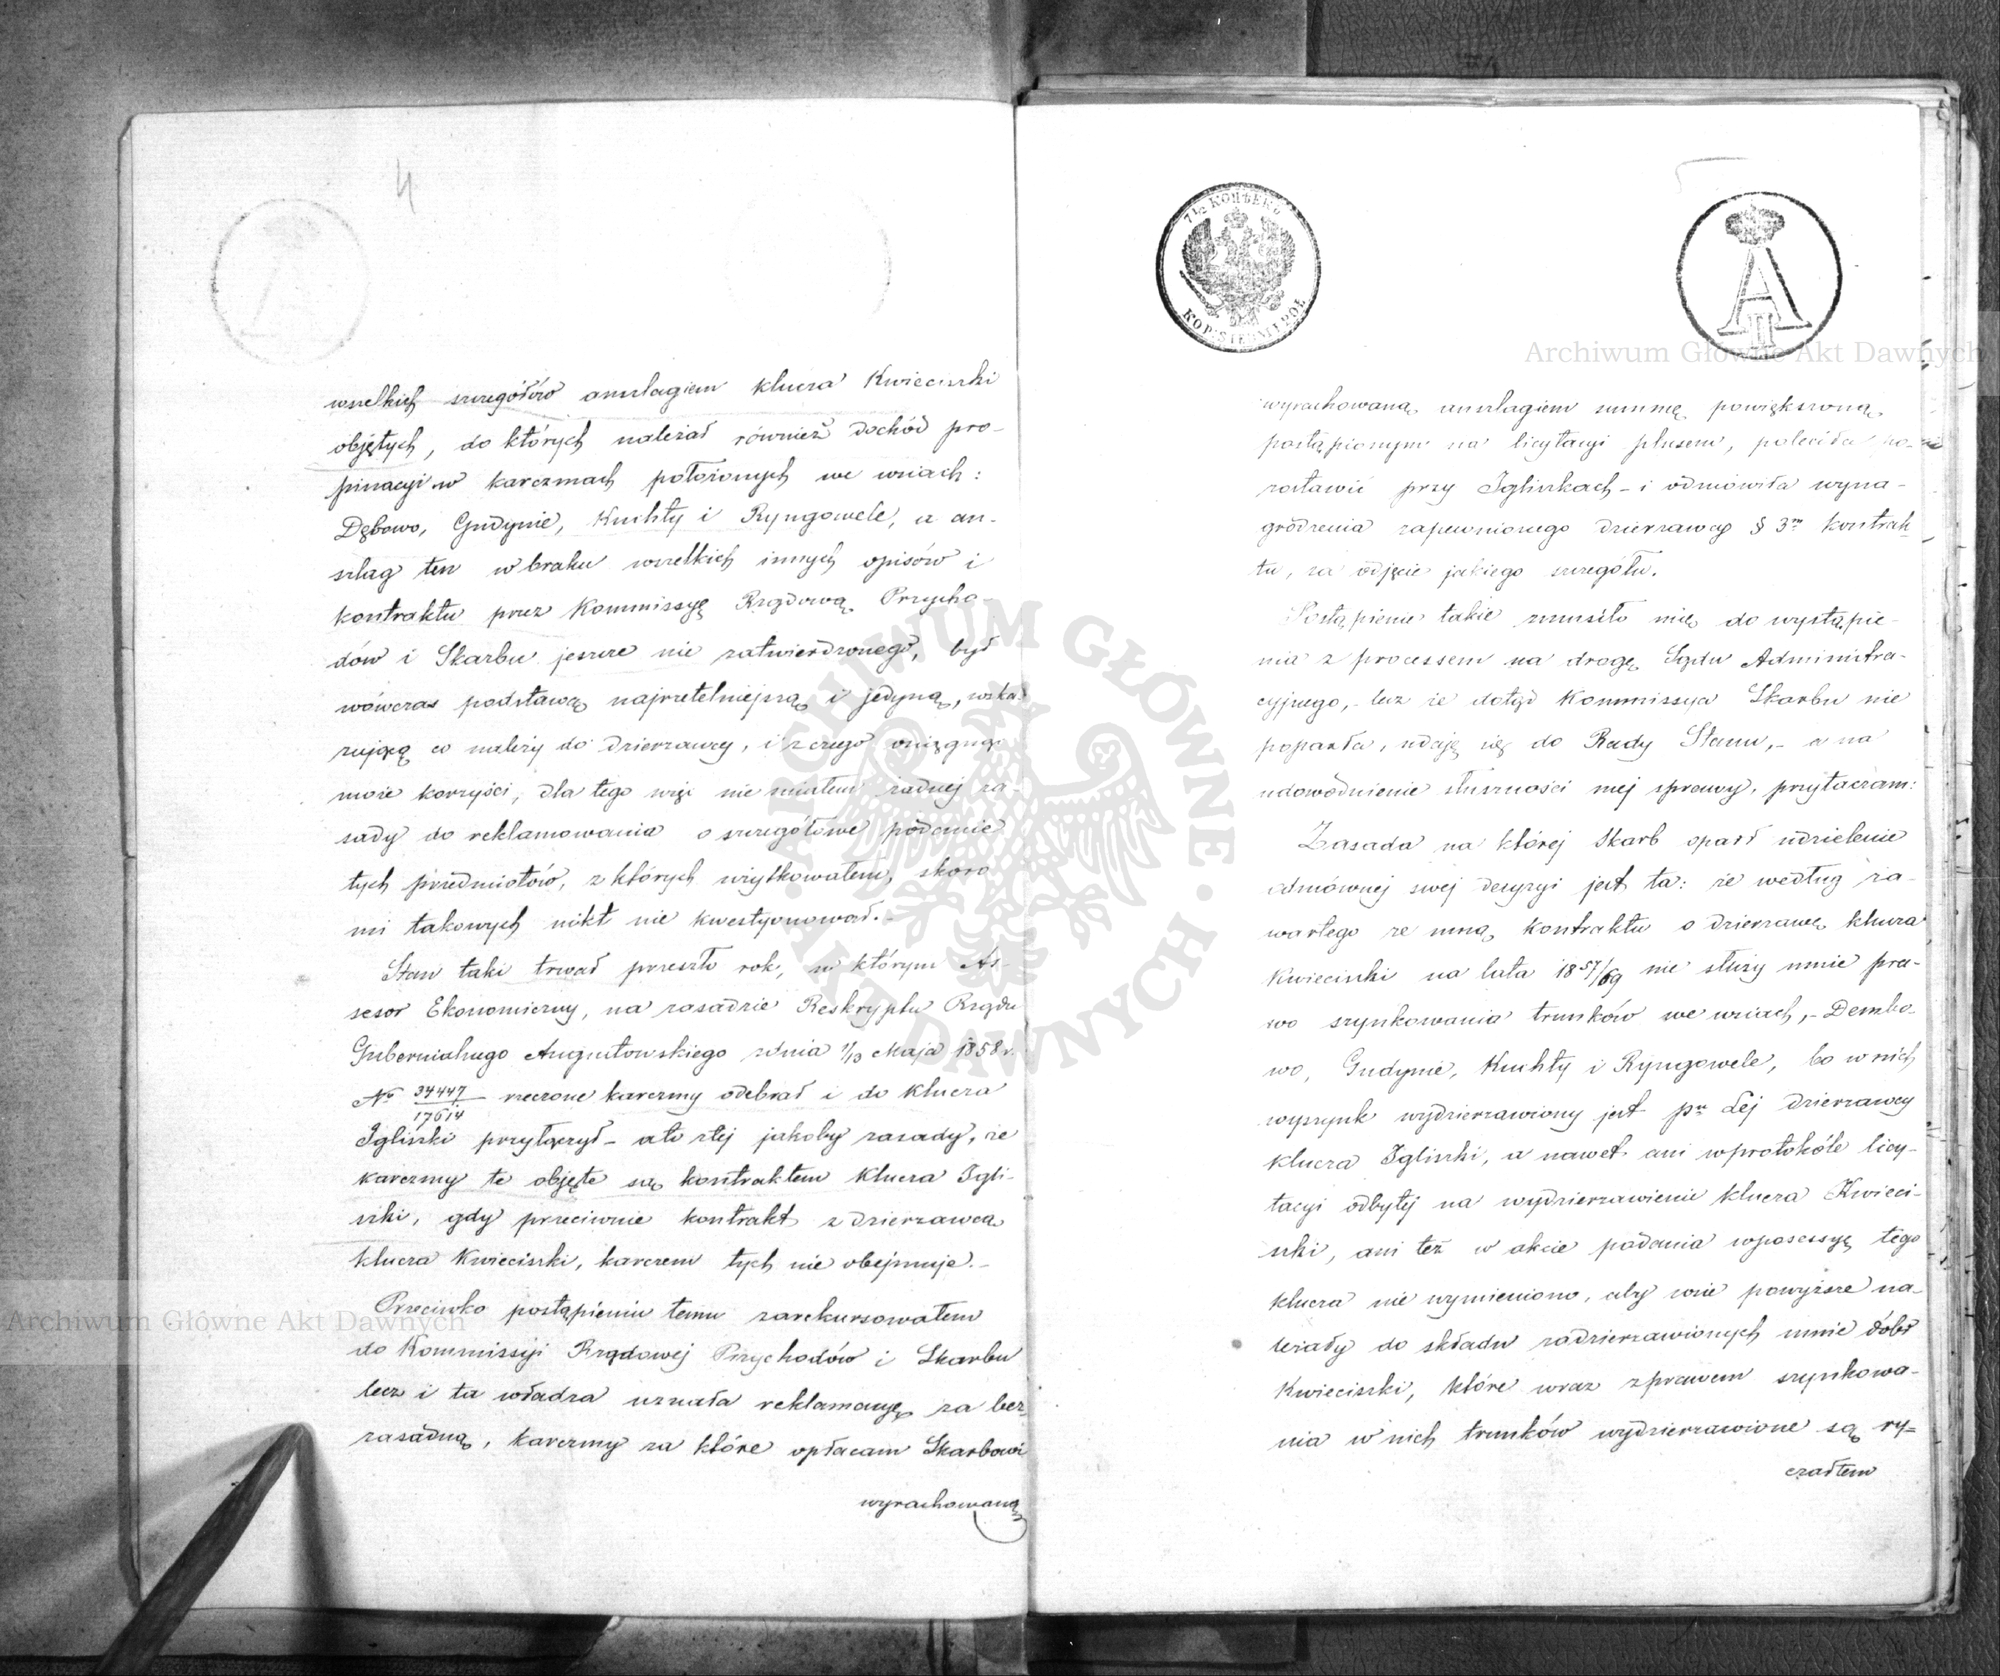 4
wszelkich szczegółów anszlagiem klucza Kwieciszki
objętych, do których należał również dochód pro-
pinacyi w karczmach położonych we wsiach:
Dębowo, Gudynie, Kuchty i Ryngowele, a an-
szlag ten w braku wszelkich innych opisów i
kontraktu przez Kommissyę Rządową Przycho-
dów i Skarbu jeszcze nie zatwierdzonego, był
wówczas podstawą najrzetelniejszą i jedyną, wska-
zującą co należy do dzierzawcy, i z czego osięgnąć
może korzyści, dla tego więc nie miałem żadnej za-
sady do reklamowania o szczegółowe podanie
tych przedmiotów, z których użytkowałem, skoro
mi takowych nikt nie kwestyonował.-
Stan taki trwał przeszło rok, w którym As-
sesor Ekonomiczny, na zasadzie Reskryptu Rządu
Gubernialnego Augustowskiego z dnia 1/13 Maja 1858 r.
No 34447/17614 rzeczone karczmy odebrał i do klucza
Igliszki przyłączył - a to z tej jakoby zasady, że
karczmy te objęte są kontraktem klucza Igli-
szki, gdy przeciwnie kontrakt z dzierzawcą
klucza Kwieciszki, karczem tych nie obejmuje.-
Przeciwko postąpieniu temu zarekursowałem
do Kommissyi Rządowej Przychodów i Skarbu
lecz i ta władza uznała reklamacyę za bez-
zasadną, karczmy za które opłacam Skarbowi
wyrachowaną
7 1/2 КОПѢЕКЪ
wyrachowaną anszlagiem summę powiększoną
postąpionym na licytacyi plusem, poleciła po-
zostawić przy Igliszkach - i odmówiła wyna-
grodzenia zapewnionego dzierzawcy § 3m kontrak-
tu, za odjęcie jakiego szczegółu.
Postąpienie takie zmusiło mię do wystąpie-
nia z processem na drogę Sądu Administra-
cyjnego, - lecz że dotąd Kommissya Skarbu nie
poparła, udaję się do Rady Stanu, - a na
udowodnienie słuszności mej sprawy, przytaczam:
Zasada na której Skarb oparł udzielenie
odmównej swej decyzyi jest ta: że według za-
wartego ze mną kontraktu o dzierzawę klucza
Kwieciszki na lata 1857/69 nie służy mnie pra-
wo szynkowania trunków we wsiach, - Dembo-
wo, Gudynie, Kuchty i Ryngowele, bo w nich
wyszynk wydzierzawiony jest dzierzawcy
klucza Igliszki, a nawet ani w protokóle licy-
tacyi odbytej na wydzierzawienie klucza Kwieci-
szki, ani też w akcie podania w posessyę tego
klucza nie wymieniono, aby wsie powyższe na-
leżały do składu zadzierzawionych mnie dóbr
Kwieciszki, które wraz z prawem szynkowa-
nia w nich trunków wydzierzawione są ry=
czałtem